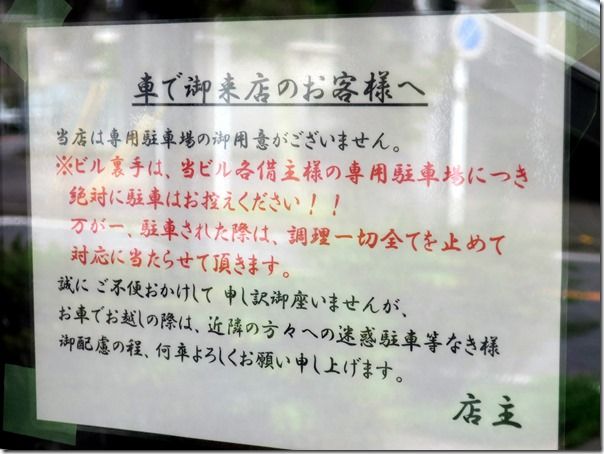 車で御来店のお客様へ
当店は専用駐車場の御用意がございません。
※ビル裏手は、当ビル各借主様の専用駐車場につき
絶対に駐車はお控えください！！
万が一、駐車された際は、調理一切全てを止めて
対応に当たらせて頂きます。
誠にご不便おかけして申し訳御座いませんが、
お車でお越しの際は、近隣の方々への迷惑駐車等なき様
御配慮の程、何卒よろしくお願い申し上げます。
店主